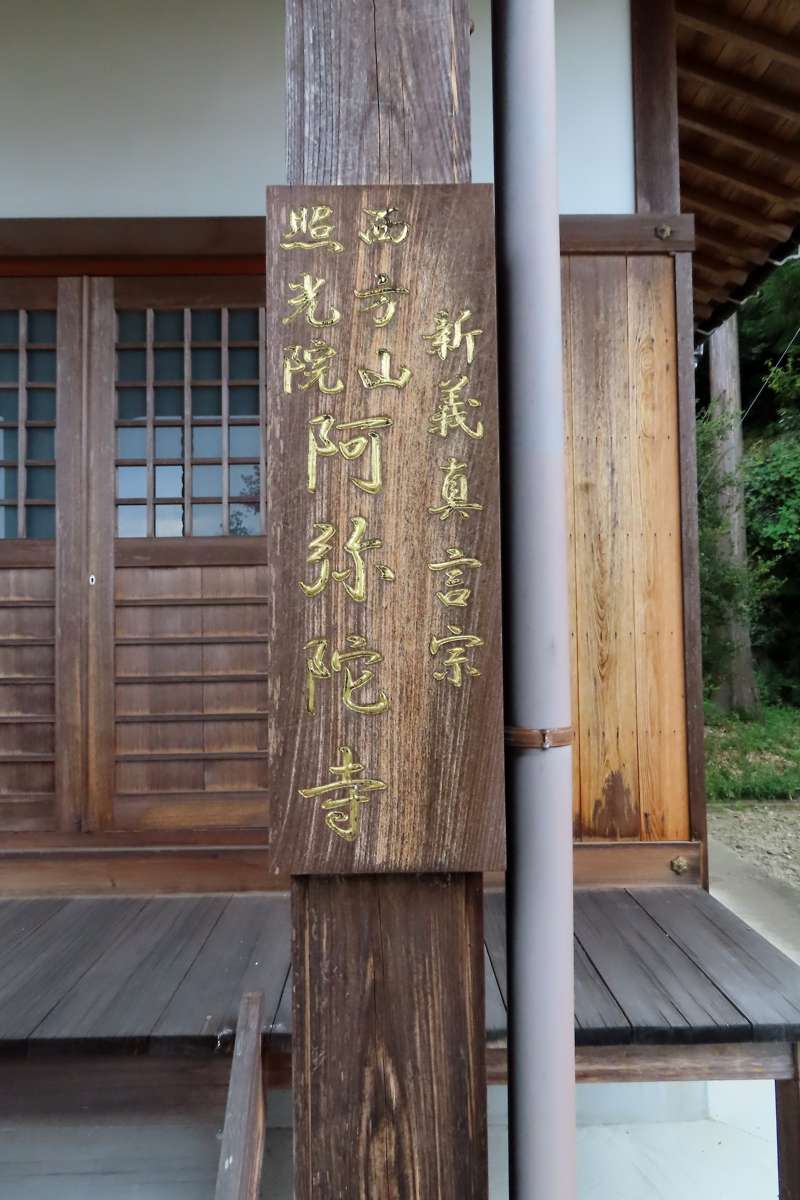 新義真言宗
西方山
照光院
阿弥陀寺